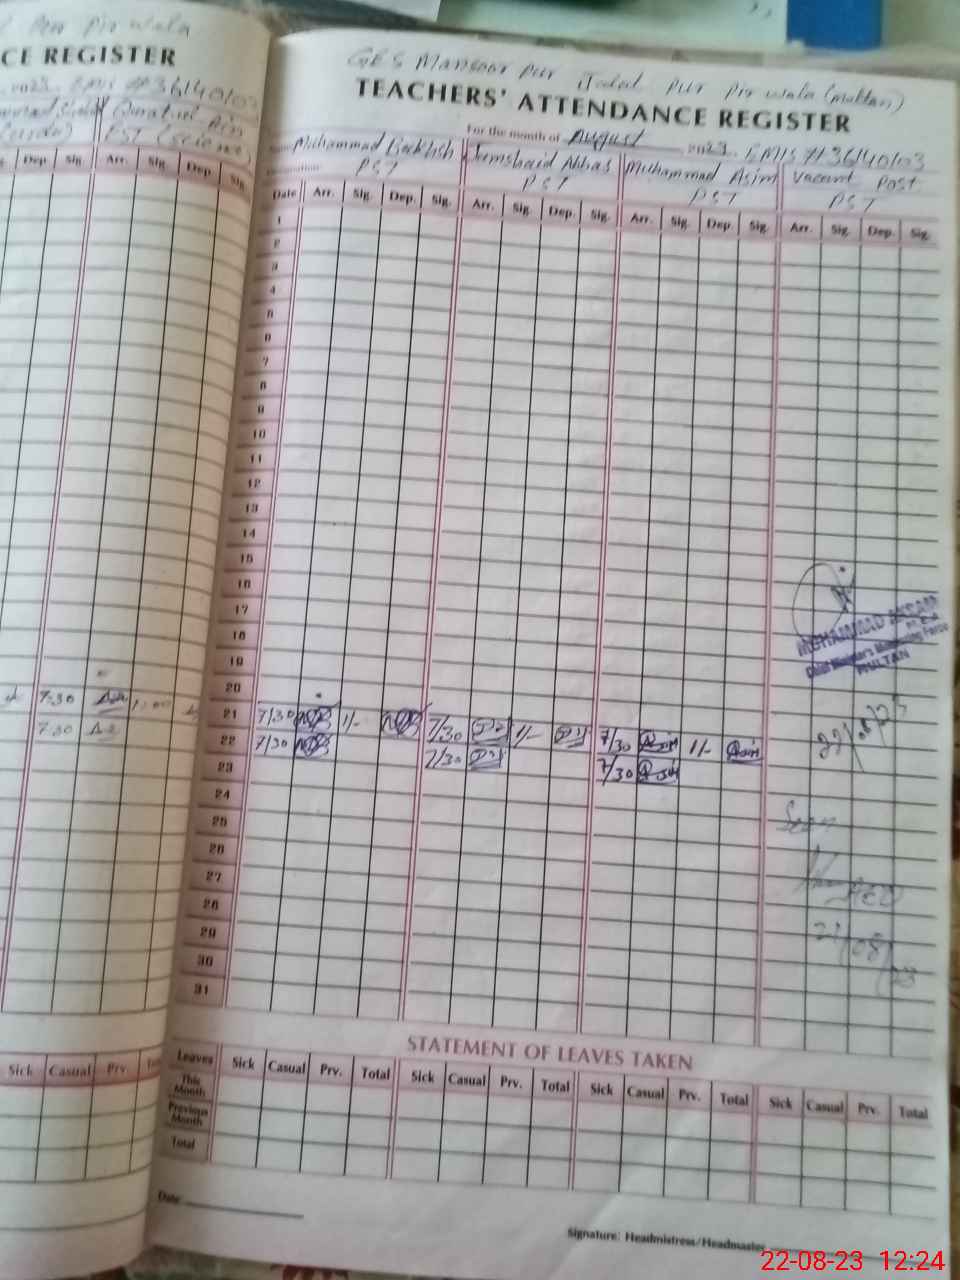 CE REGISTER
2023. EMIS #36140103
EST (Science)
Dep. Sig. Arr. Sig. Dep. Sig.
7.30
7.30
Sick Casual Prv.
GES Mansoor Pur Jalal Pur Pir Wala (Multan)
TEACHERS' ATTENDANCE REGISTER
For the month of August 2023. EMIS #36140103
Muhammad Bakhsh Jamshaid Abbas Muhammad Asim Vacant Post
PST PST PST PST
Date Arr. Sig. Dep. Sig. Arr. Sig. Dep. Sig. Arr. Sig. Dep. Sig. Arr. Sig. Dep. Sig.
1
2
3
4
5
6
7
8
9
10
11
12
13
14
15
16
17
18
19
20
21 7/30 1/- 7/30 1/- 7/30 Asim 1/- Asim
22 7/30 7/30 7/30 Asim
23
24
25
26
27
28
29
30
31
MUHAMMAD
Chief Minister's Monitoring Force
MULTAN
22/08/23
AEO
21/08/23
STATEMENT OF LEAVES TAKEN
Leaves Sick Casual Prv. Total Sick Casual Prv. Total Sick Casual Prv. Total Sick Casual Prv. Total
This Month
Previous Month
Total
Date
Signature: Headmistress/Headmaster
22-08-23 12:24